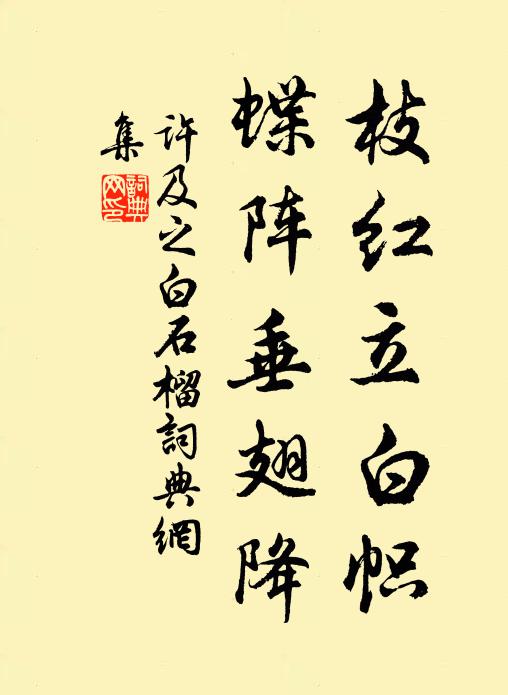 枝红立白帜
蝶阵垂翅降
许及之白石榴詞典網
集
詞典网印